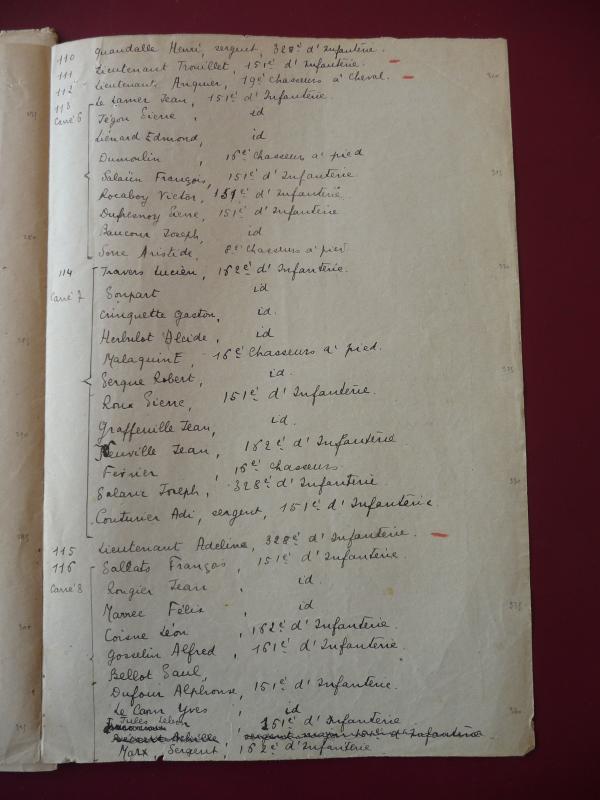 110 Quandalle Henri, sergent, 328e d'Infanterie.
111 Lieutenant Trouillet, 151e d'Infanterie.
112 Lieutenant Anquier, 19e Chasseurs à Cheval.
113 Le Lamer Jean, 151e d'Infanterie.
Carré 6 Tégon Pierre, id
Liénard Edmond, id
Dumoulin, 16e Chasseurs à pied
Salaün François, 151e d'Infanterie
Rocaboy Victor, 151e d'Infanterie.
Dufresnoy Pierre, 151e d'Infanterie
Baucour Joseph, id
Sorre Aristide, 8e Chasseurs à pied
114 Travers Lucien, 162e d'Infanterie.
Carré 7 Soupart id
Crinquette Gaston, id.
Herbulot Alcide, id
Malaquint, 16e Chasseurs à pied.
Sergue Robert, id.
Roux Pierre, 151e d'Infanterie.
Graffeuille Jean, id.
Neuville Jean, 162e d'Infanterie
Février, 16e Chasseurs
Salaric Joseph, 328e d'Infanterie
Couturier Adi, sergent, 151e d'Infanterie.
115 Lieutenant Adeline, 328e d'Infanterie.
116 Sallats François, 151e d'Infanterie.
Carré 8 Rougier Jean, id.
Marrec Félix, id
Coisne Léon, 162e d'Infanterie
Gosselin Alfred, 161e d'Infanterie.
Bellot Paul,
Dufour Alphonse, 151e d'Infanterie.
Le Cann Yves, id
Jules 151e d'Infanterie
Achille, sergent major d'Infanterie
Marx, Sergent, 162e d'Infanterie